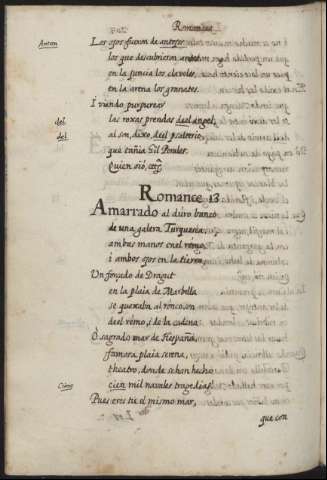 Romances
Anton Los ojos fueron de antojos
los que descubrieron ambos
en la juncia los claveles,
en la arena los granates.
I viendo purpurear
del las roxas prendas del angel,
del al son, dixo, del psalterio,
que tañia Gil Perales.
Quien oió, etc.
Romance 13
Amarrado al duro banco
de una galera Turquesca,
ambas manos en el remo,
i ambos ojos en la tierra,
Un forçado de Dragut
en la plaia de Marbella
se quexaba al ronco son
de el remo, i de la cadena
O sagrado mar de Hespaña,
famosa plaia serena,
theatro, donde se han hecho
Cien cien mil navales tragedias!
Pues eres tu el mismo mar,
que con